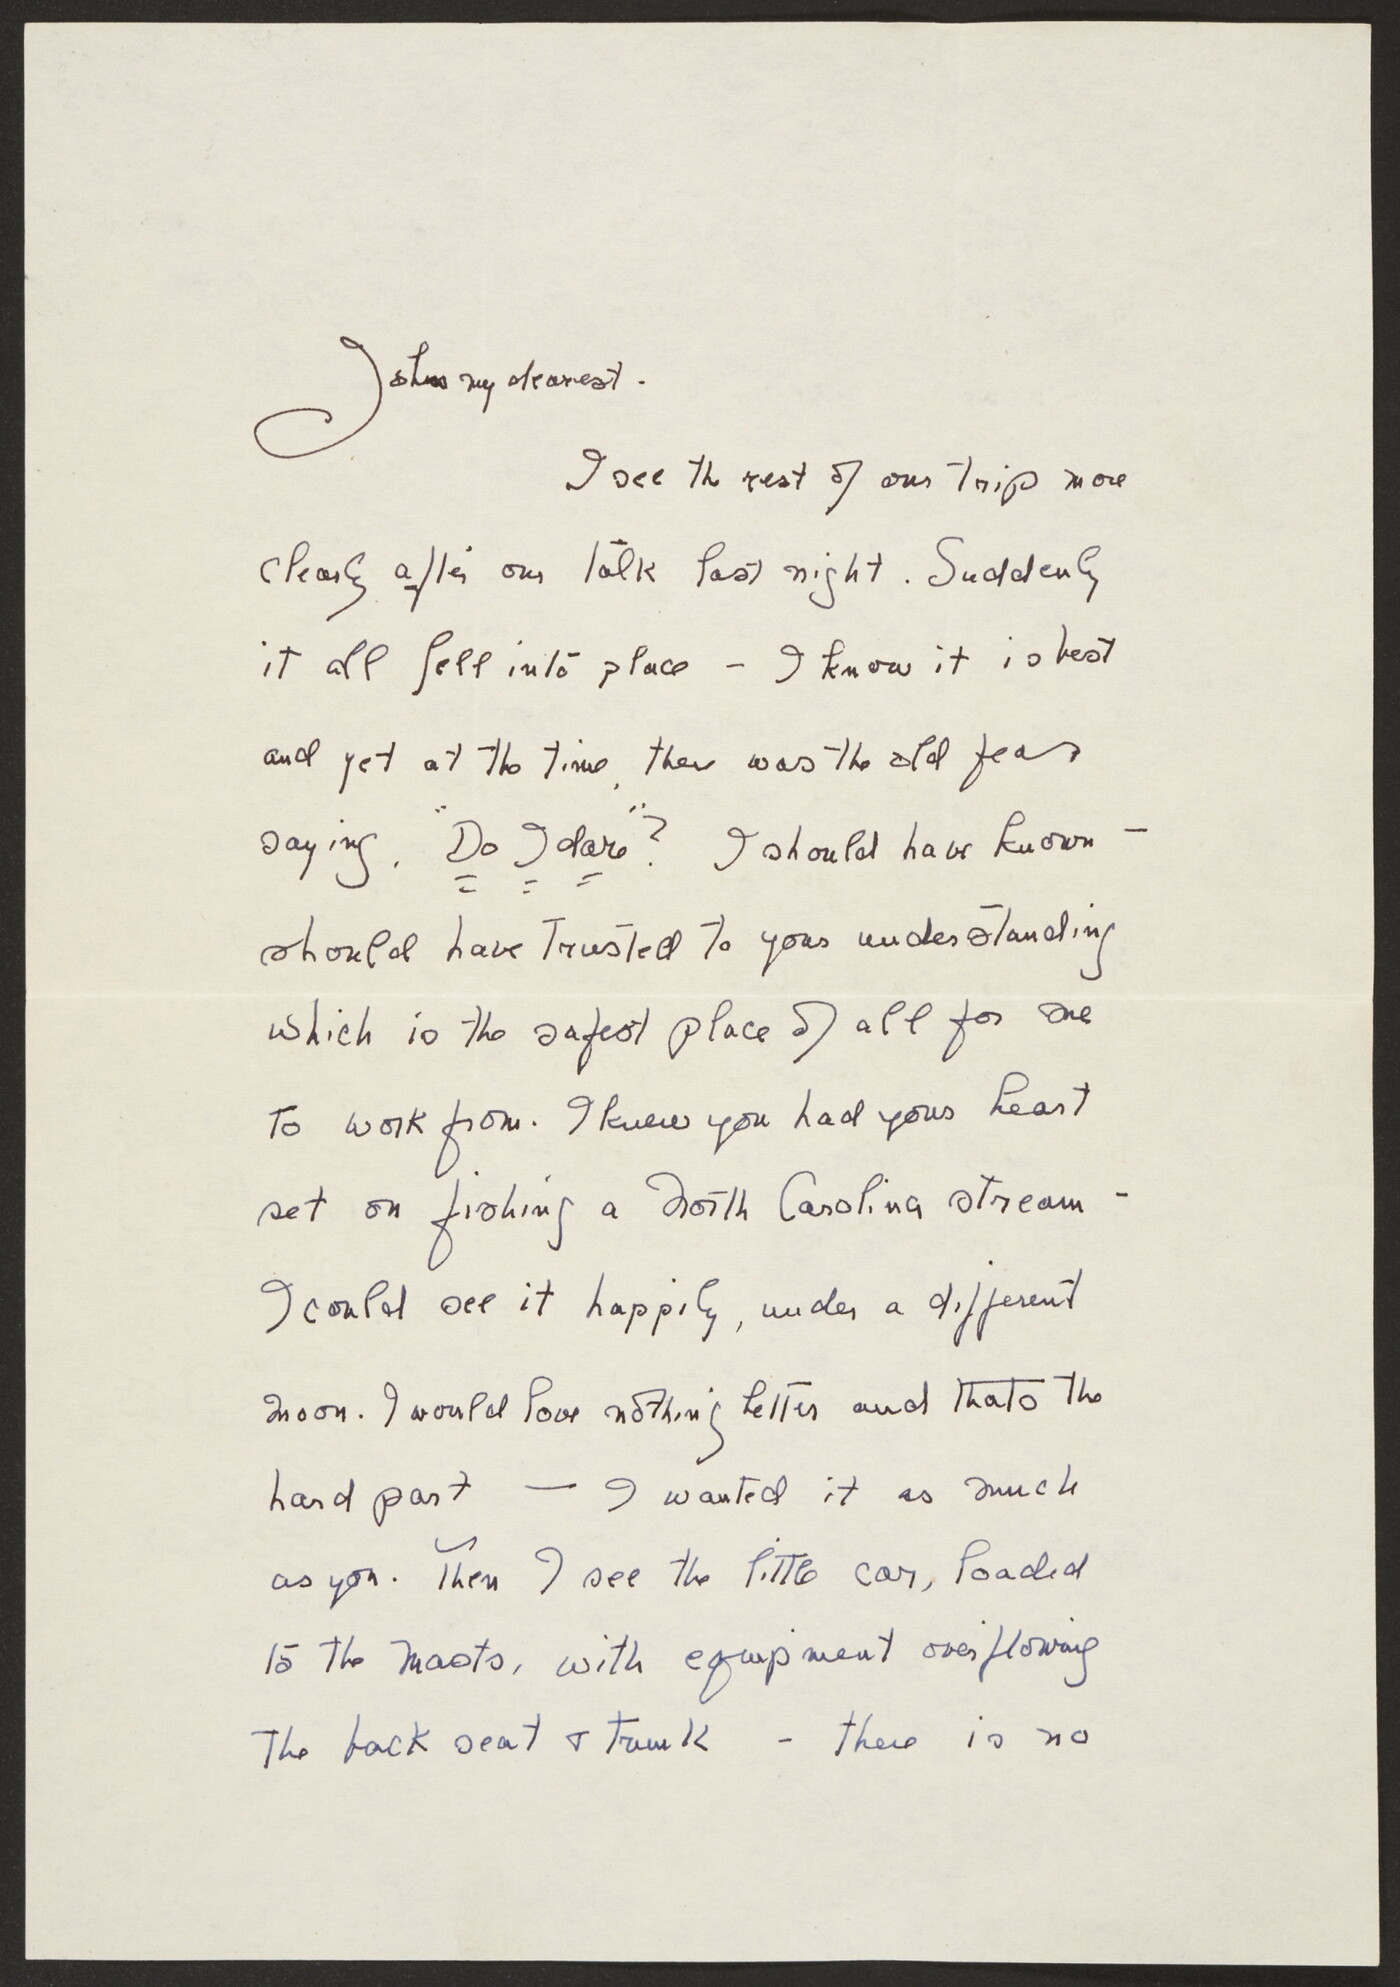 John my dearest.
I see the rest of our trip more
clearly after our talk last night. Suddenly
it all fell into place - I know it is best
and yet at the time, there was the old fear
saying, "Do I dare"? I should have known -
should have trusted to your understanding
which is the safest place of all for me
to work from. I knew you had your heart
set on fishing a North Carolina stream -
I could see it happily, under a different
moon. I would love nothing better and thats the
hard part — I wanted it as much
as you. Then I see the little car, loaded
to the masts, with equipment overflowing
the back seat & trunk - there is no